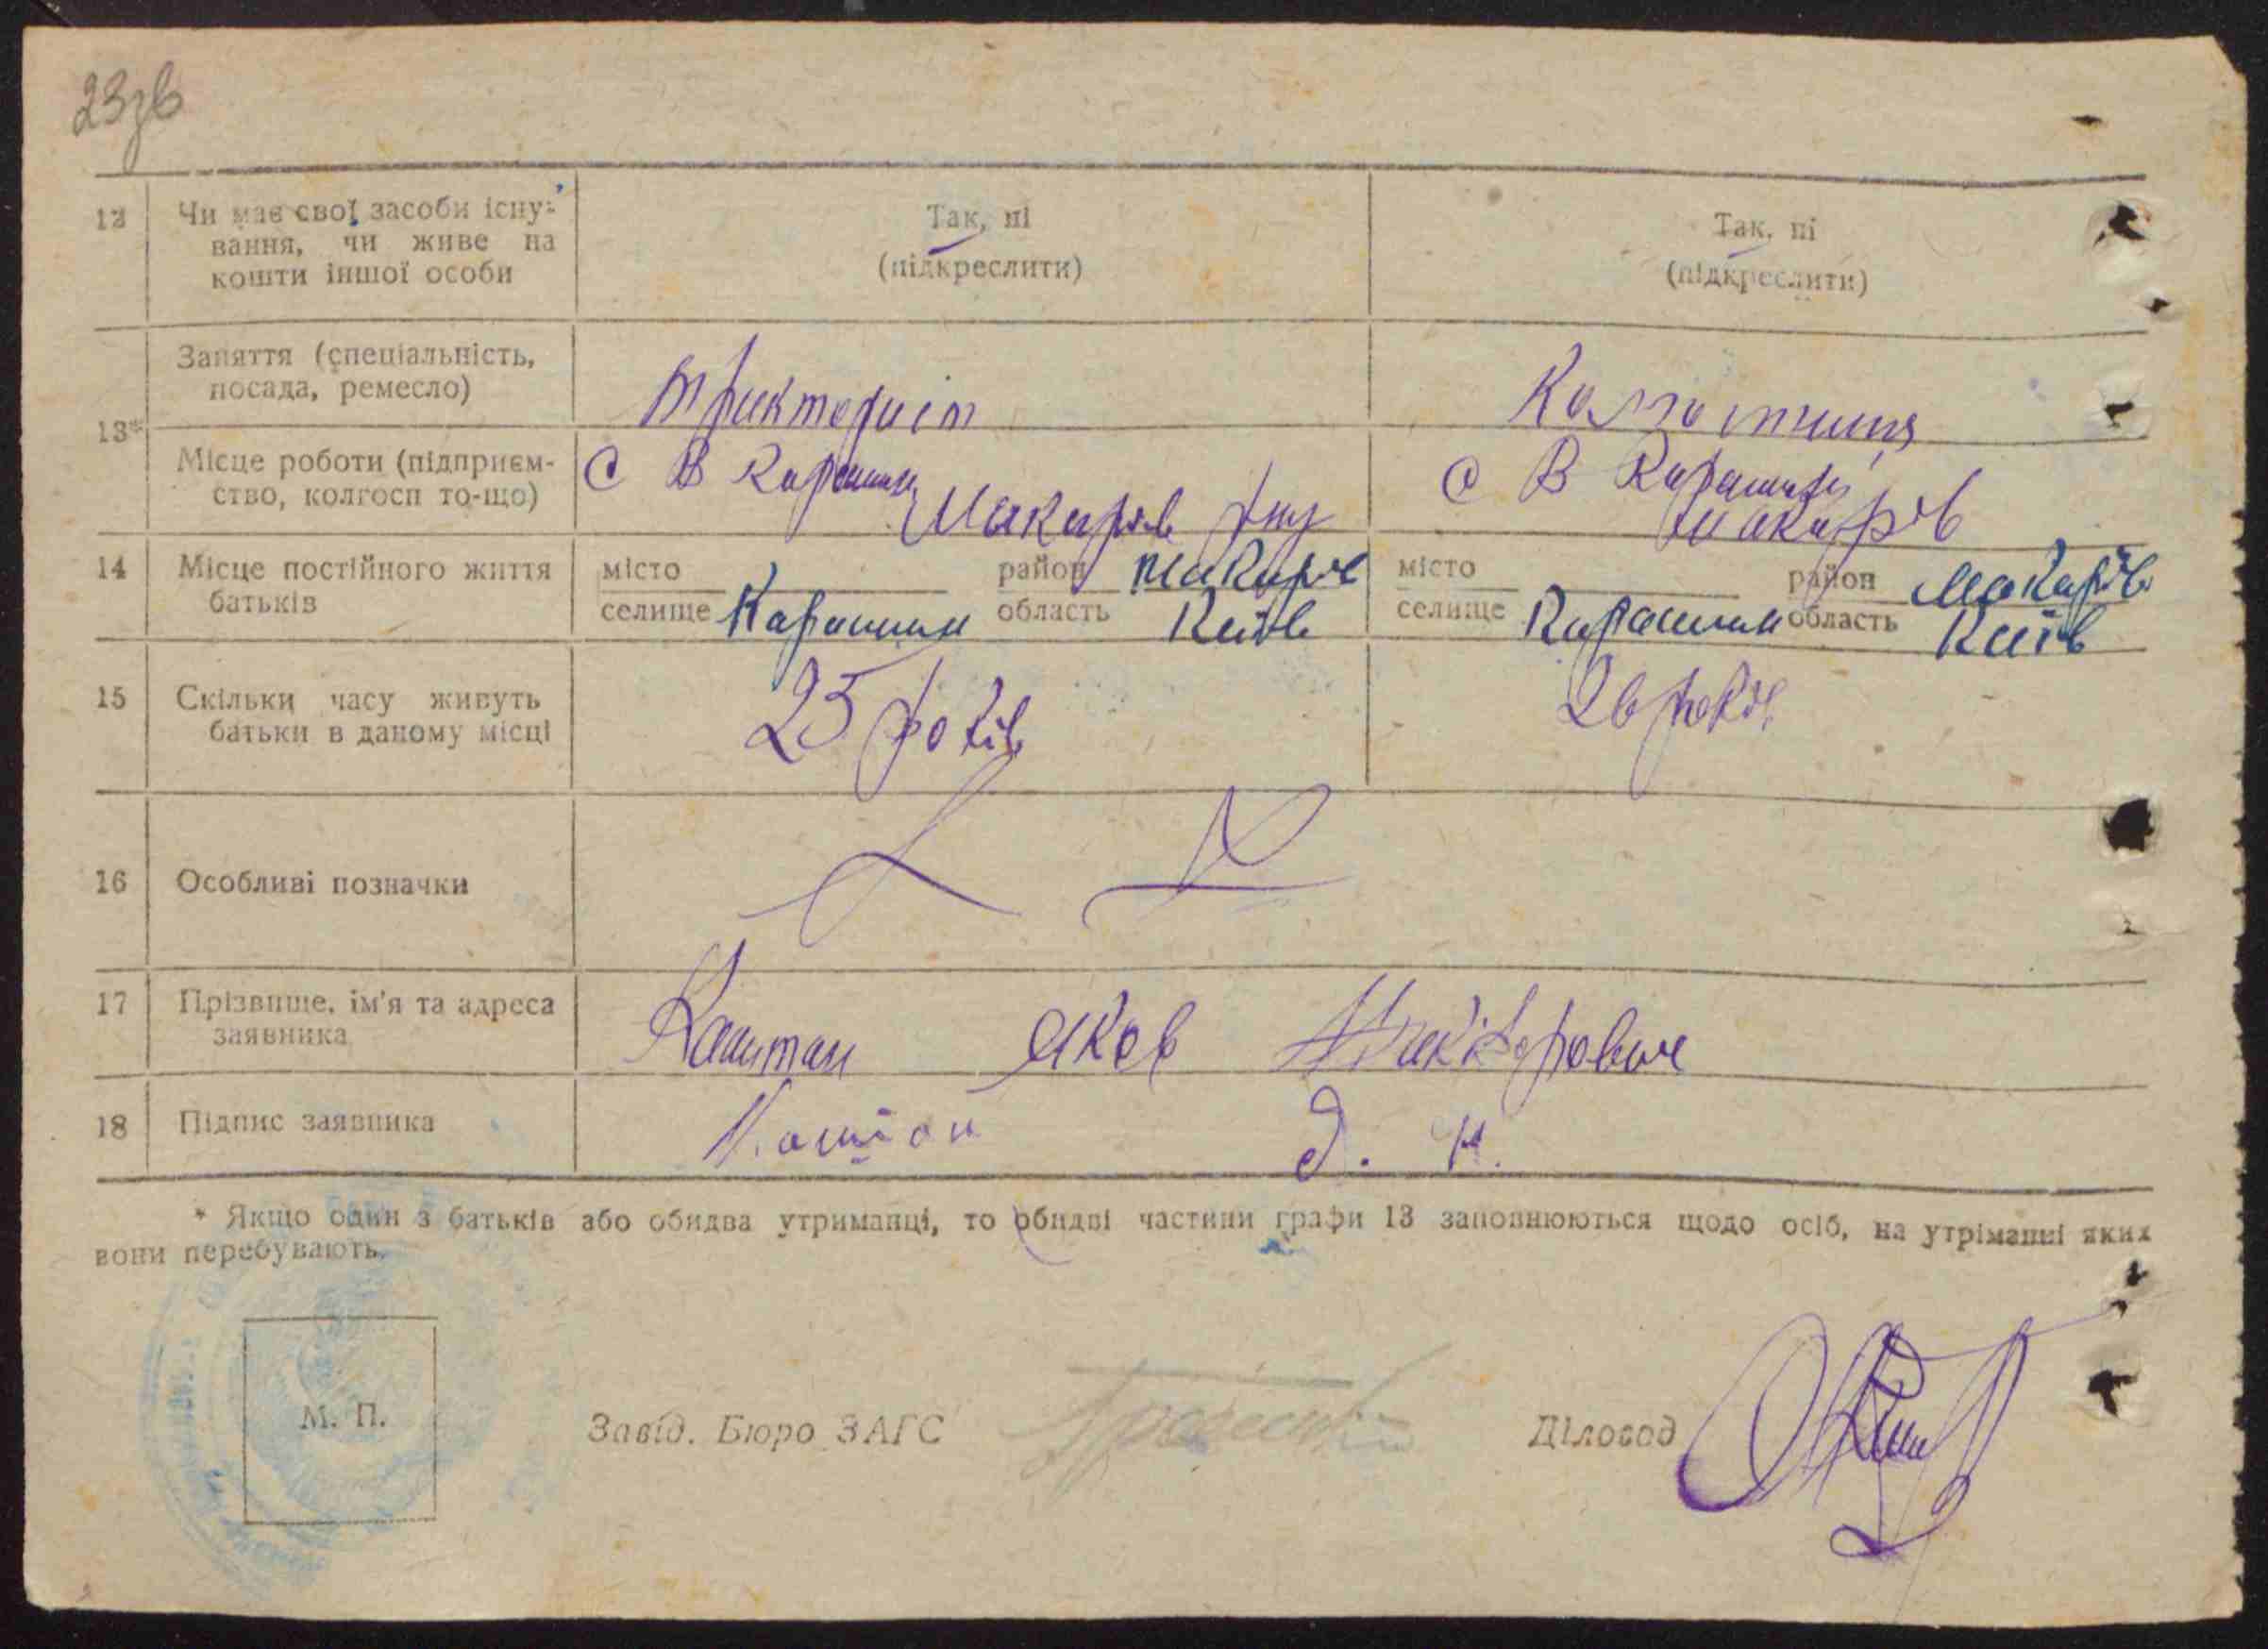 23зв
12 Чи має свої засоби існу-
вання, чи живе на
кошти іншої особи
Так, ні
(підкреслити)
Так, ні
(підкреслити)
13*
Заняття (спеціальність,
посада, ремесло)
Тракторист
Колгостниця
Місце роботи (підприєм-
ство, колгосп то-що)
С В Карашин
Макарів р-ну
С В Карашин
Макарів
14 Місце постійного життя
батьків
місто район Макарів
селище Карашин область Київ
місто район Макарів
селище Карашин область Київ
15 Скільки часу живуть
батьки в даному місці
25 років
26 років
16 Особливі позначки
17 Прізвище, ім'я та адреса
заявника
Каштан Яков Никифорович
18 Підпис заявника
Каштан Я. Н.
* Якщо один з батьків або обидва утриманці, то обидві частини графи 13 заповнюються щодо осіб, на утріманні яких
вони перебувають.
М. П.
Завід. Бюро ЗАГС
Діловод